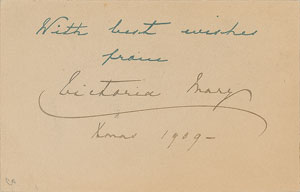 With best wishes
from
Victoria Mary
Xmas 1909-